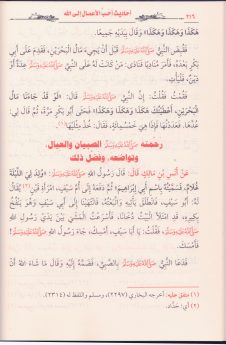 ٢١٦ أحاديث أحب الأعمال إلى الله
هَكَذَا وَهَكَذَا وَهَكَذَا» وَقَالَ بِيَدَيْهِ جَمِيعًا.
فَقُبِضَ النَّبِيُّ ﷺ قَبْلَ أَنْ يَجِيءَ مَالُ الْبَحْرَيْنِ، فَقَدِمَ عَلَى أَبِي
بَكْرٍ بَعْدَهُ، فَأَمَرَ مُنَادِيًا فَنَادَى: مَنْ كَانَتْ لَهُ عَلَى النَّبِيِّ ﷺ عِدَةٌ أَوْ
دَيْنٌ، فَلْيَأْتِ.
فَقُمْتُ فَقُلْتُ: إِنَّ النَّبِيَّ ﷺ قَالَ: «لَوْ قَدْ جَاءَنَا مَالُ
الْبَحْرَيْنِ، أَعْطَيْتُكَ هَكَذَا وَهَكَذَا وَهَكَذَا» فَحَثَى أَبُو بَكْرٍ مَرَّةً، ثُمَّ قَالَ لِي:
عُدَّهَا. فَعَدَدْتُهَا فَإِذَا هِيَ خَمْسُمِائَةٍ، فَقَالَ: خُذْ مِثْلَيْهَا(١).
رحمته ﷺ الصبيان والعيال،
وتواضعه، وفضل ذلك
عَنْ أَنَسِ بْنِ مَالِكٍ قَالَ: قَالَ رَسُولُ اللهِ ﷺ: «وُلِدَ لِيَ اللَّيْلَةَ
غُلَامٌ، فَسَمَّيْتُهُ بِاسْمِ أَبِي إِبْرَاهِيمَ» ثُمَّ دَفَعَهُ إِلَى أُمِّ سَيْفٍ، امْرَأَةِ قَيْنٍ(٢) يُقَالُ
لَهُ أَبُو سَيْفٍ، فَانْطَلَقَ يَأْتِيهِ وَاتَّبَعْتُهُ، فَانْتَهَيْنَا إِلَى أَبِي سَيْفٍ وَهُوَ يَنْفُخُ
بِكِيرِهِ، قَدِ امْتَلَأَ الْبَيْتُ دُخَانًا، فَأَسْرَعْتُ الْمَشْيَ بَيْنَ يَدَيْ رَسُولِ اللهِ
ﷺ، فَقُلْتُ: يَا أَبَا سَيْفٍ، أَمْسِكْ، جَاءَ رَسُولُ اللهِ ﷺ،
فَأَمْسَكَ.
فَدَعَا النَّبِيُّ ﷺ بِالصَّبِيِّ، فَضَمَّهُ إِلَيْهِ وَقَالَ مَا شَاءَ اللهُ أَنْ
(١) متفق عليه: أخرجه البخاري (٢٢٩٧)، ومسلم واللفظ له (٢٣١٤).
(٢) أي: حداد.